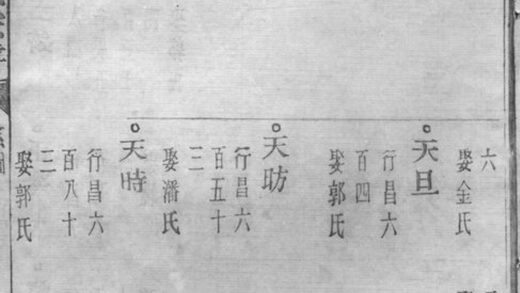 六
娶金氏
天旦
行昌六
百四
娶郭氏
天昉
行昌六
百五十
三
娶潘氏
天時
行昌六
百八十
三
娶郭氏